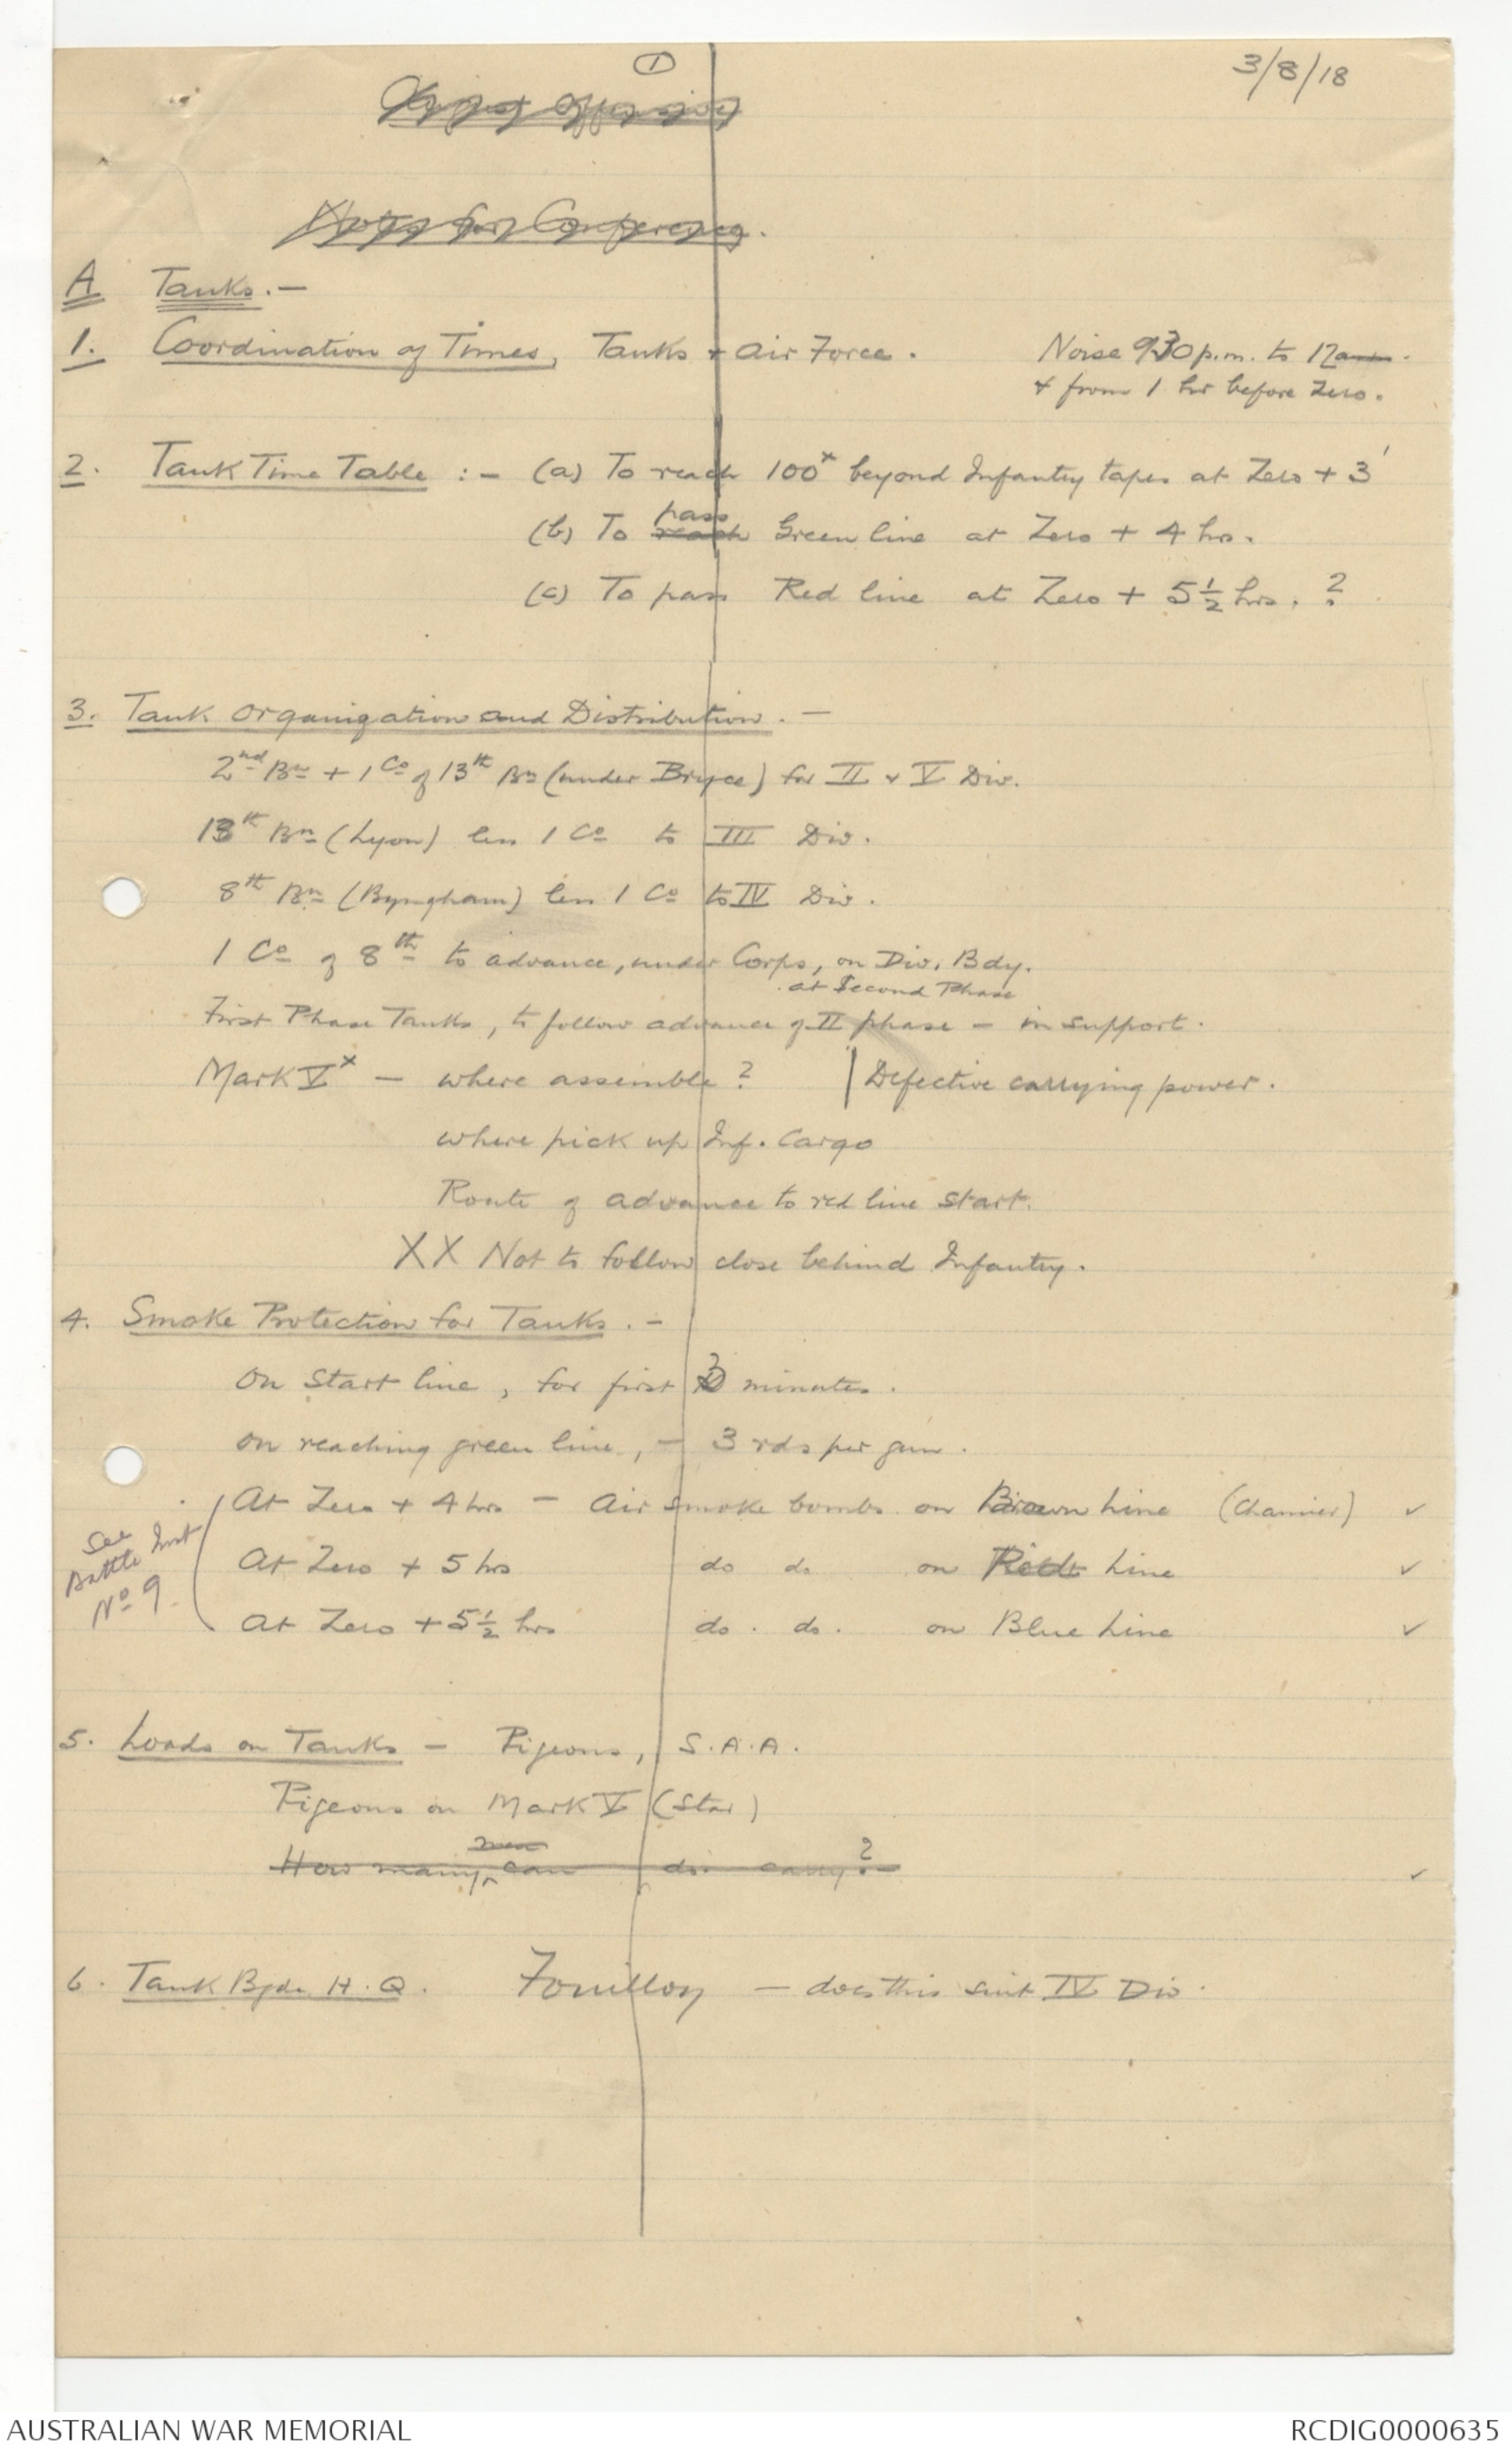 ①
3/8/18
Notes for Conference.
A Tanks. —
1. Coordination of Times, Tanks + Air Force.
Noise 930 p.m. to 12 am.
+ from 1 hr before Zero.
2. Tank Time Table :— (a) To reach 100x beyond Infantry tapes at Zero + 3'
(b) To reach pass Green line at Zero + 4 hrs.
(c) To pass Red line at Zero + 5½ hrs. ?
3. Tank Organization and Distribution. —
2nd Bn + 1 Co of 13th Bn (under Bryce) for II + V Div.
13th Bn (Lyon) less 1 Co to III Div.
8th Bn (Byngham) less 1 Co to IV Div.
1 Co of 8th to advance, under Corps, on Div. Bdy.
at Second Phase
First Phase Tanks, to follow advance of II phase — in support.
Mark Vx — where assemble? | Defective carrying power.
where pick up Inf. Cargo
Route of advance to red line start.
XX Not to follow close behind Infantry.
4. Smoke Protection for Tanks. —
On start line, for first minutes.
On reaching green line, — 3 rds per gun.
At Zero + 4 hrs — Air smoke bombs on Brown Line (Chamier) ✓
At Zero + 5 hrs do do on Red Line ✓
At Zero + 5½ hrs do. do. on Blue Line ✓
See
Battle Inst
No 9.
5. Loads on Tanks — Pigeons, S.A.A.
Pigeons on Mark V (Star)
How many men can do carry? ✓
6. Tank Bgde H.Q. Fouilloy — does this suit IV Div.
AUSTRALIAN WAR MEMORIAL
RCDIG0000635